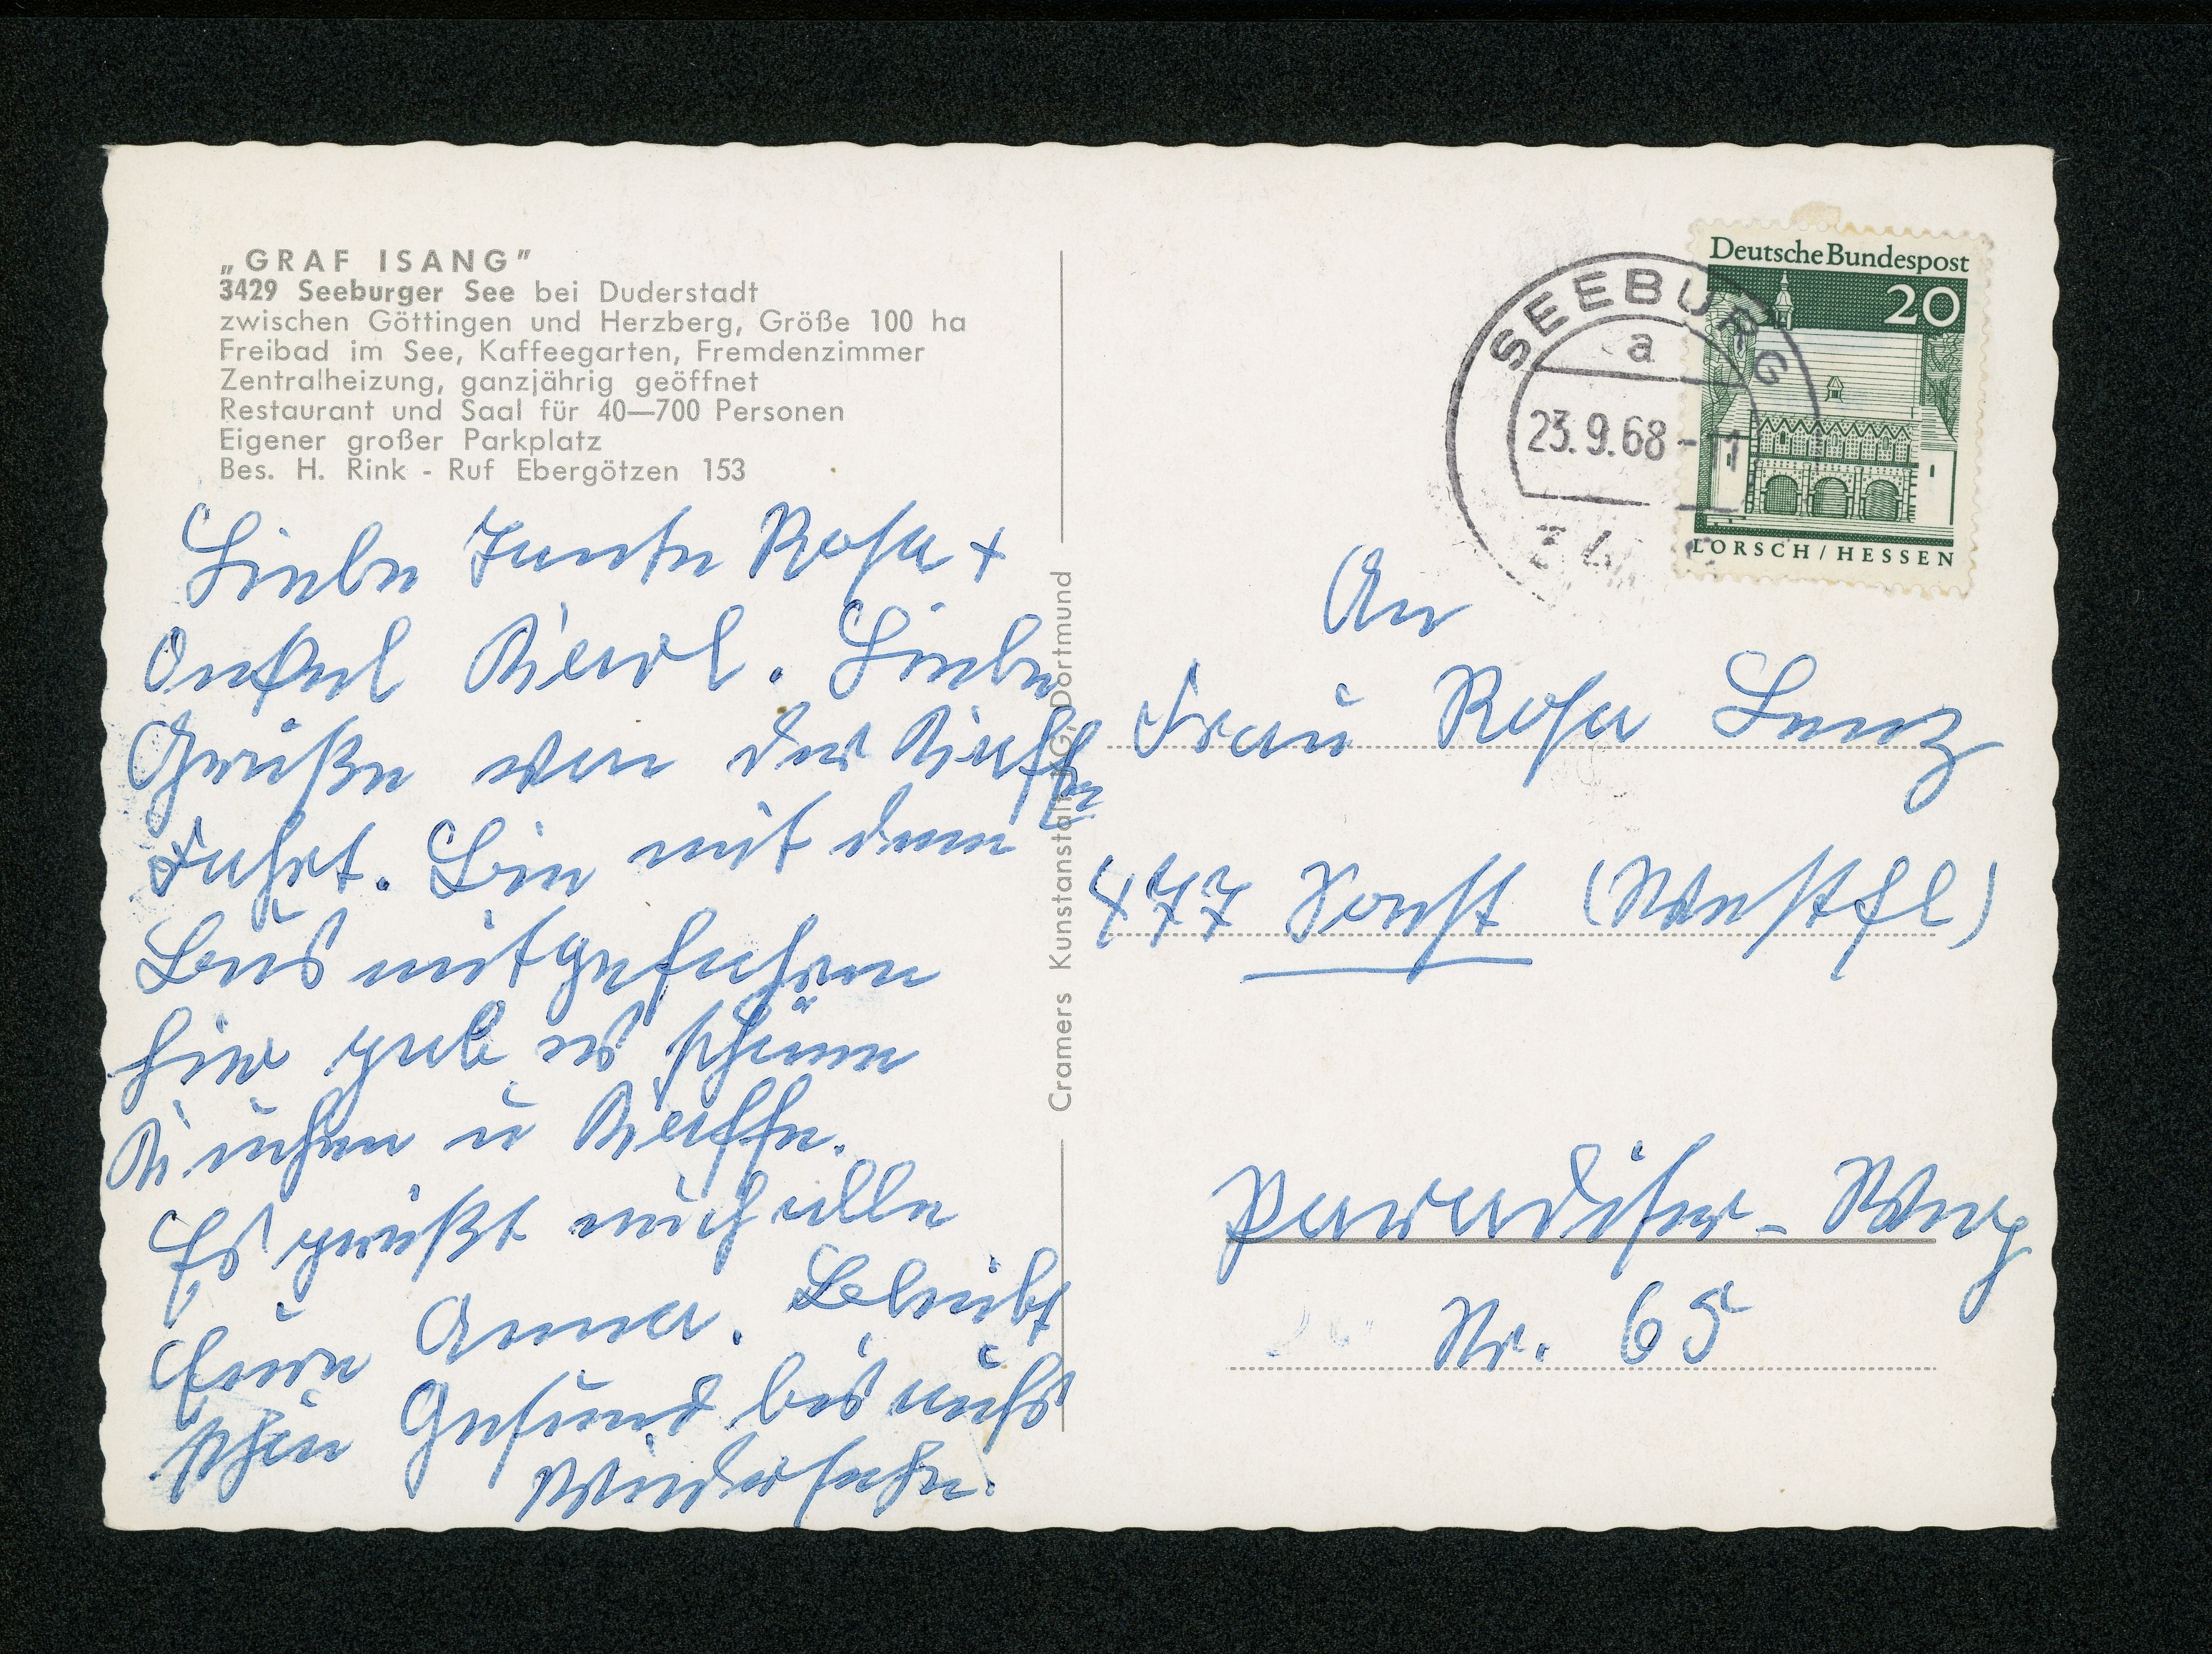 „GRAF ISANG”
3429 Seeburger See bei Duderstadt
zwischen Göttingen und Herzberg, Größe 100 ha
Freibad im See, Kaffeegarten, Fremdenzimmer
Zentralheizung, ganzjährig geöffnet
Restaurant und Saal für 40—700 Personen
Eigener großer Parkplatz
Bes. H. Rink - Ruf Ebergötzen 153
Liebe Tante Rosa +
Onkel Karl. Liebe
Grüße von der Kaffee
Fahrt. Bin mit dem
Bus mitgefahren
hier gab es schönen
Kuchen u Kaffe.
Es grüßt euch alle
Eure Anna. Bleibt
schön Gesund bis aufs
Wiedersehn.
Cramers Kunstanstalt KG, Dortmund
SEEBURG
a
23.9.68-11
34
Deutsche Bundespost
20
LORSCH/HESSEN
An
Frau Rosa Lenz
477 Soest (Westfl)
Paradiser-Weg
Nr. 65